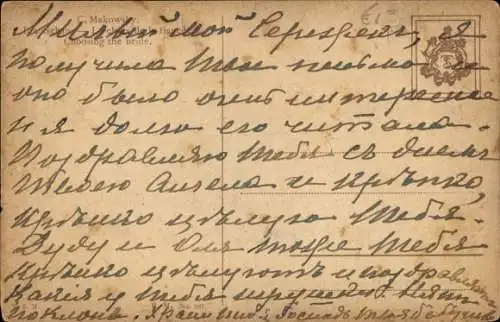 C. Makowsky.
Choosing the bride.
Милый мой Сереженька, я
получила твое письмо и
оно было очень интересное
и я долго его читала.
Поздравляю тебя съ днемъ
твоего Ангела и крѣпко,
крѣпко цѣлую тебя.
Дуду и Оля тоже тебя
крѣпко цѣлуютъ и поздравляютъ
Какія у тебя игрушки?
поклонъ. Храни тебя Господь твоя бабушка